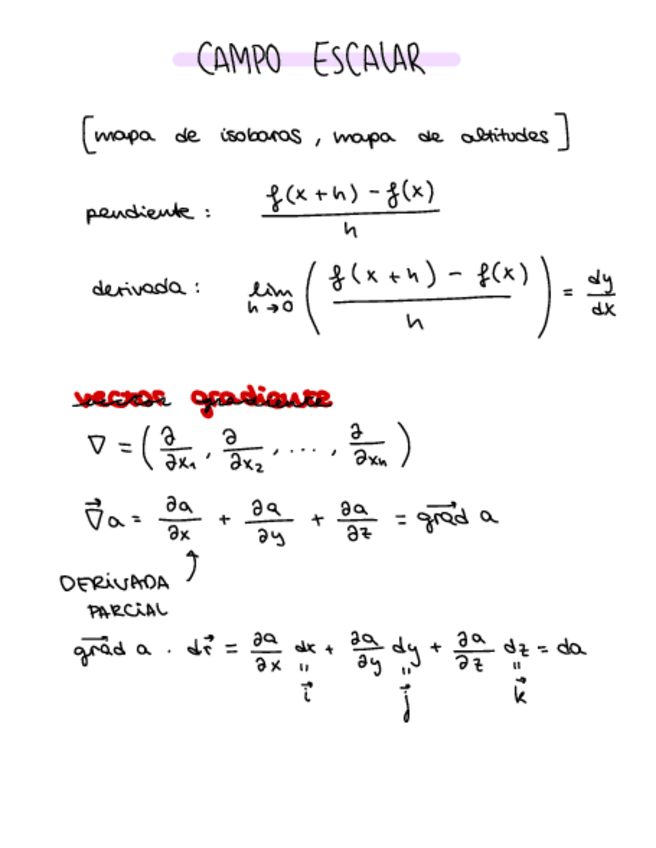 CAMPO ESCALAR
[mapa de isobaras, mapa de altitudes]
pendiente: \frac{f(x+h) - f(x)}{h}
derivada: \lim_{h→0} \left( \frac{f(x+h) - f(x)}{h} \right) = \frac{dy}{dx}
vector gradiente
∇ = \left( \frac{∂}{∂x_1}, \frac{∂}{∂x_2}, ...., \frac{∂}{∂x_n} \right)
\vec{∇}a = \frac{∂a}{∂x} + \frac{∂a}{∂y} + \frac{∂a}{∂z} = \overrightarrow{grad} a
DERIVADA
PARCIAL
\overrightarrow{grad} a · d\vec{r} = \frac{∂a}{∂x} dx + \frac{∂a}{∂y} dy + \frac{∂a}{∂z} dz = da
" " "
\vec{i} \vec{j} \vec{k}